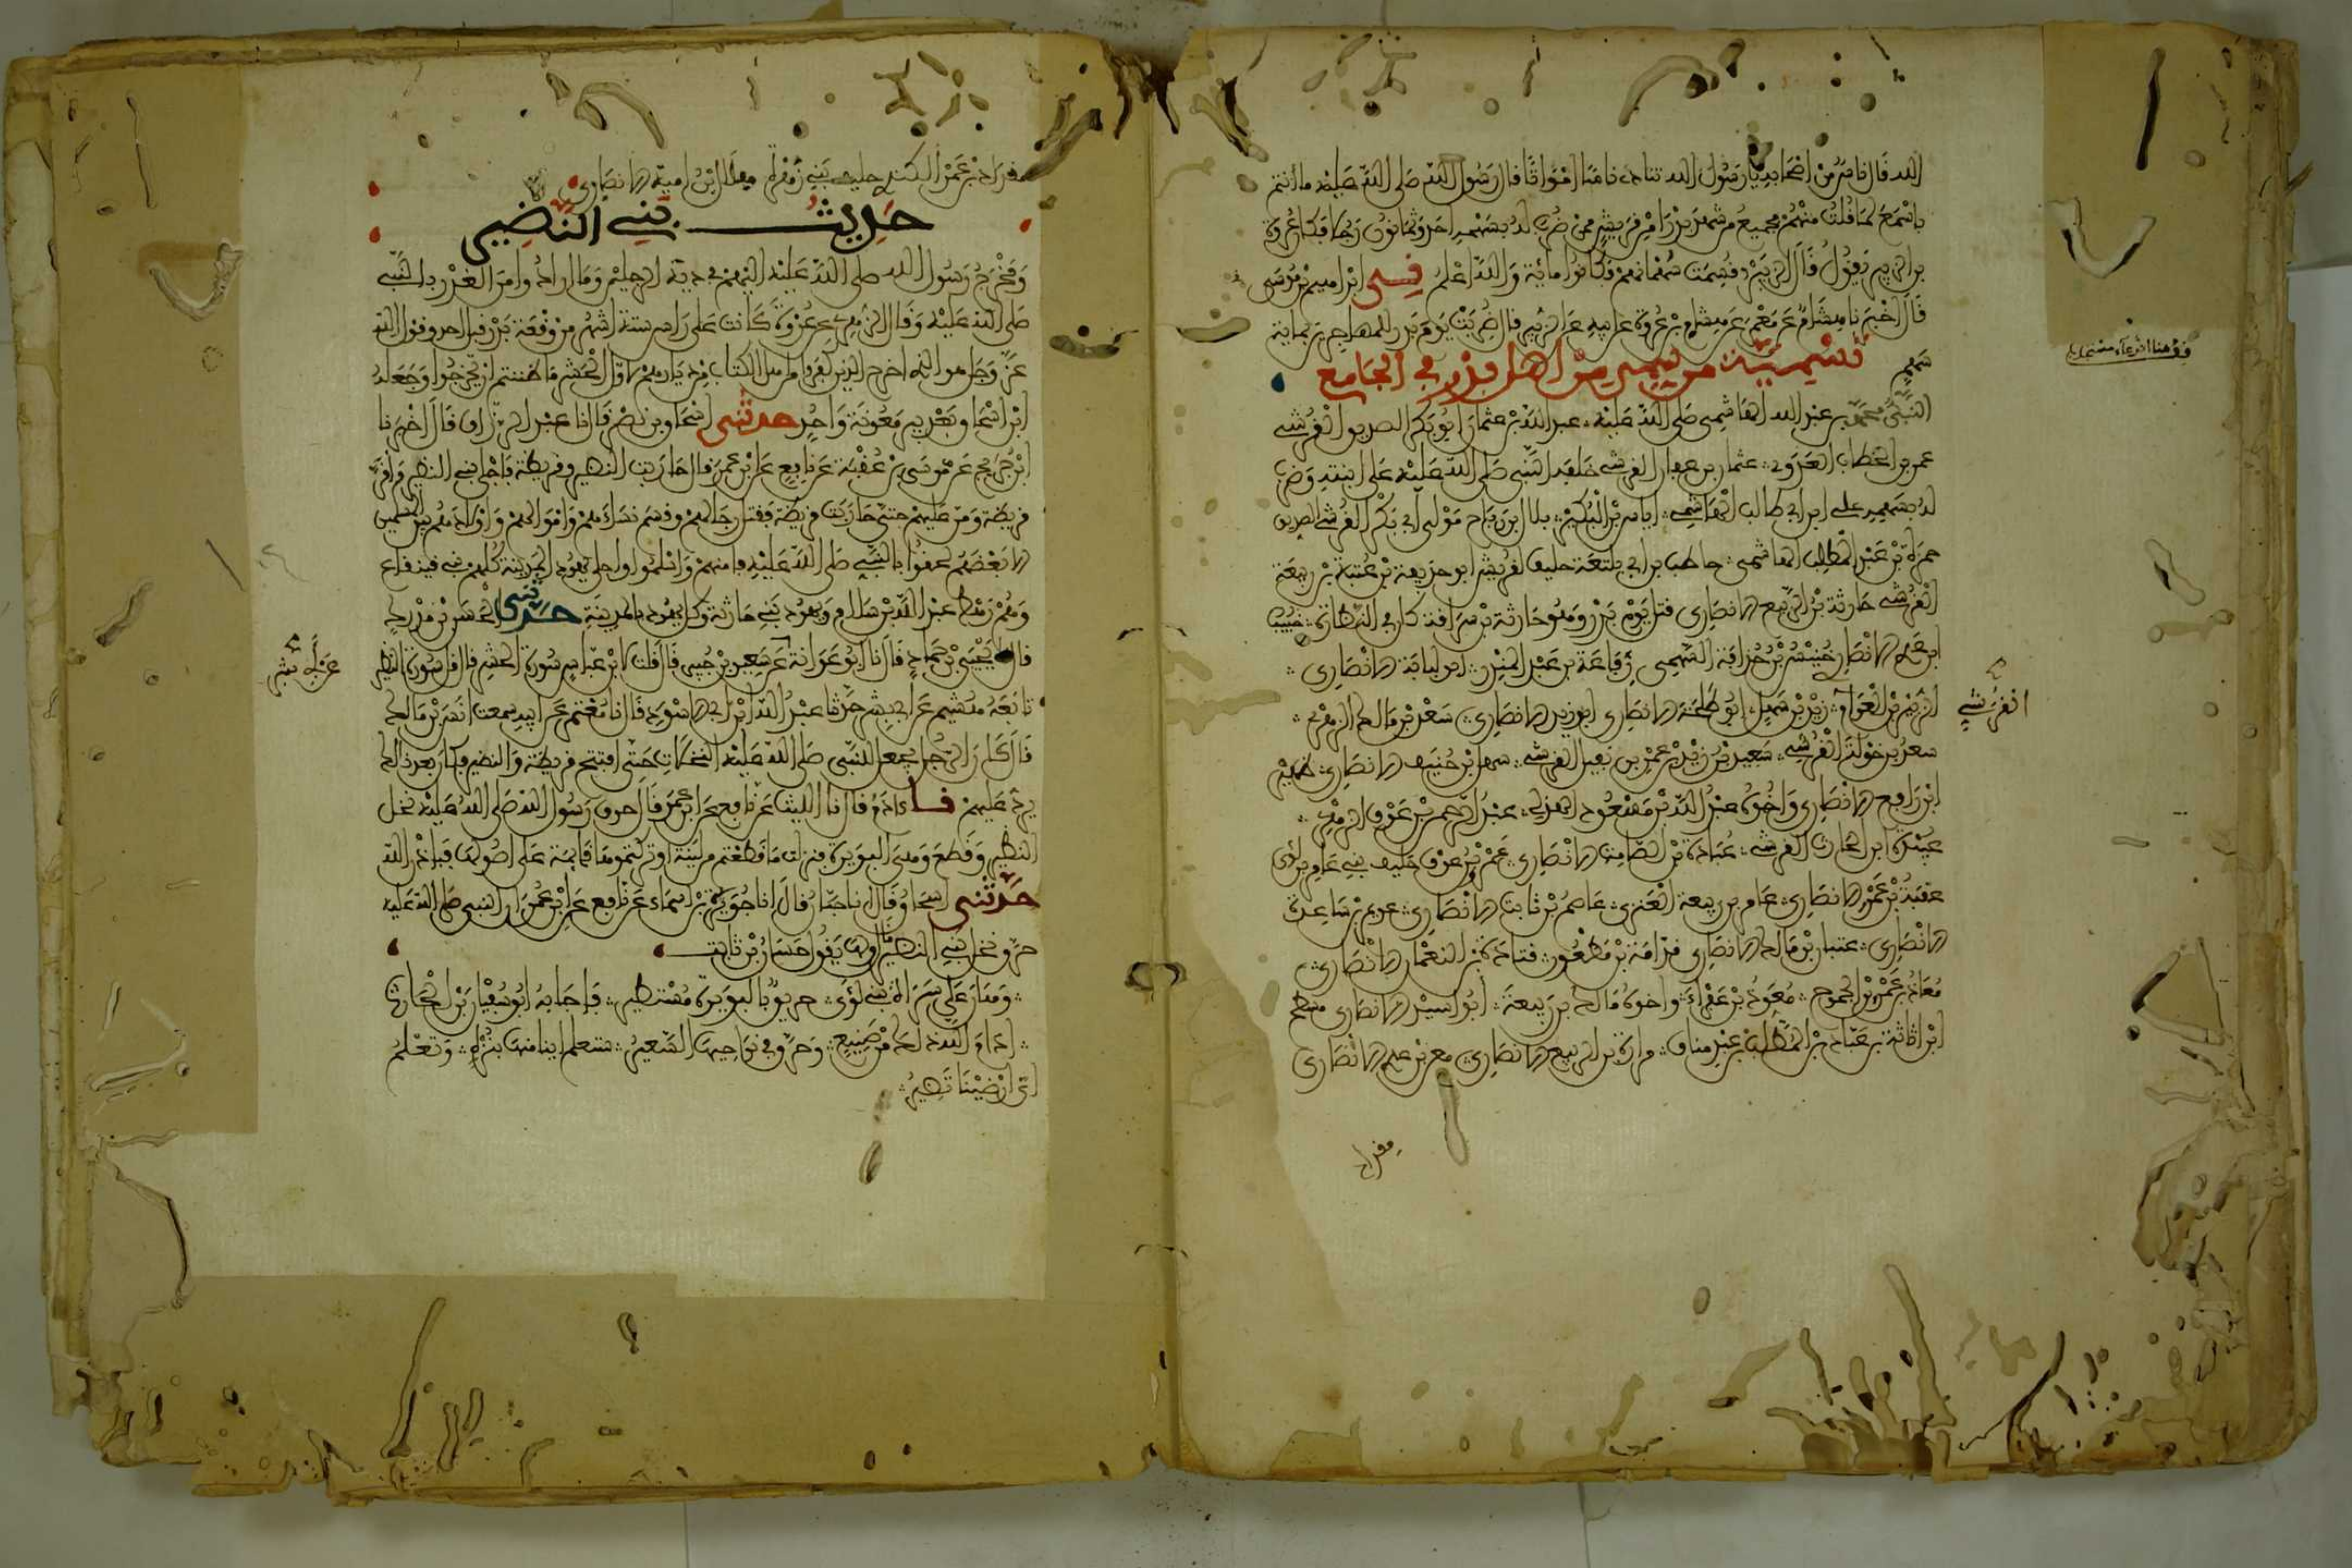 الله قال ناس من اصحابه يا رسول الله تنادي ناسا امواتا قال رسول الله صلى الله عليه ما انتم
باسمع لما قلت منهم فجميع من شهد بدرا من قريش ممن ضرب له بسهمه احد وثمانون رجلا وكان عروة
بن الزبير يقول قال الزبير قسمت سهمانهم فكانوا مائة والله اعلم ابراهيم بن موسى
قال اخبرنا هشام عن معمر عن هشام بن عروة عن ابيه عن الزبير قال ضربت يوم بدر للمهاجرين بمائة
سهم
تسمية من سمي من اهل بدر في الجامع
النبي محمد بن عبد الله الهاشمي صلى الله عليه عبد الله بن عثمان ابو بكر الصديق القرشي
عمر بن الخطاب العدوي عثمان بن عفان القرشي خلفه النبي صلى الله عليه على ابنته وضرب
له بسهمه علي ابن ابي طالب الهاشمي اياس بن البكير بلال بن رباح مولى ابي بكر القرشي الصديق
حمزة بن عبد المطلب الهاشمي حاطب بن ابي بلتعة حليف لقريش ابو حذيفة بن عتبة بن ربيعة
القرشي حارثة بن الربيع الانصاري قتل يوم بدر وهو حارثة بن سراقة كان في النظارة خبيب
ابن عدي الانصاري خنيس بن حذافة السهمي رفاعة بن عبد المنذر ابو لبابة الانصاري
الزبير بن العوام زيد بن سهيل ابو طلحة الانصاري ابو زيد الانصاري سعد بن مالك الزهري
القرشي
سعد بن خولة القرشي سعيد بن زيد بن عمرو بن نفيل القرشي سهل بن حنيف الانصاري ظهير
ابن رافع الانصاري واخوه عبد الله بن مسعود الهذلي عبد الرحمن بن عوف الزهري
عبيدة ابن الحارث القرشي عبادة بن الصامت الانصاري عمرو بن عوف حليف بني عامر بن لؤي
عقبة بن عمرو الانصاري عامر بن ربيعة العنزي عاصم بن ثابت الانصاري عويم بن ساعدة
الانصاري عتبان بن مالك الانصاري قدامة بن مظعون قتادة بن النعمان الانصاري
معاذ بن عمرو بن الجموح معوذ بن عفراء واخوه مالك بن ربيعة ابو اسيد الانصاري مسطح
ابن اثاثة بن عباد بن المطلب بن عبد مناف مرارة بن الربيع الانصاري معن بن عدي الانصاري
مقداد
مقداد بن عمرو الكندي حليف بني زهرة هلال ابن امية الانصاري
حديث بني النضير
ومخرج رسول الله صلى الله عليه اليهم في دية الرجلين وما ارادوا من الغدر بالنبي
صلى الله عليه وقال الزهري عن عروة كانت على راس ستة اشهر من وقعة بدر قبل احد وقول الله
عز وجل هو الذي اخرج الذين كفروا من اهل الكتاب من ديارهم لاول الحشر ما ظننتم ان يخرجوا وجعله
ابن اسحاق بعد بير معونة واحد حدثني اسحاق بن نصر قال انا عبد الرزاق قال اخبرنا
ابن جريج عن موسى بن عقبة عن نافع عن ابن عمر قال حاربت النضير وقريظة فاجلى بني النضير واقر
قريظة ومن عليهم حتى حاربت قريظة فقتل رجالهم وقسم نساءهم واموالهم واولادهم بين المسلمين
الا بعضهم لحقوا بالنبي صلى الله عليه فامنهم واسلموا واجلى يهود المدينة كلهم بني قينقاع
وهم رهط عبد الله بن سلام ويهود بني حارثة وكل يهود بالمدينة حدثني الحسن بن مدرك
قال يحيى بن حماد قال انا ابو عوانة عن ابي بشر عن سعيد بن جبير قال قلت لابن عباس سورة الحشر قال قل سورة النضير
تابعه هشيم عن ابي بشر حدثنا عبد الله ابن ابي الاسود قال انا معتمر عن ابيه سمعت انس بن مالك
قال كان الرجل يجعل للنبي صلى الله عليه النخلات حتى افتتح قريظة والنضير فكان بعد ذلك
يرد عليهم نا ءادم قال انا الليث عن نافع عن ابن عمر قال حرق رسول الله صلى الله عليه نخل
النضير وقطع وهي البويرة فنزلت ما قطعتم من لينة او تركتموها قائمة على اصولها فباذن الله
حدثني اسحاق قال انا حبان قال انا جويرية بن اسماء عن نافع عن ابن عمر ان النبي صلى الله عليه
حرق نخل بني النضير ولها يقول حسان بن ثابت
وهان على سراة بني لؤي حريق بالبويرة مستطير فاجابه ابو سفيان بن الحارث
ادام الله ذلك من صنيع وحرق في نواحيها السعير ستعلم اينا منها بنزه وتعلم
اي ارضينا تضير